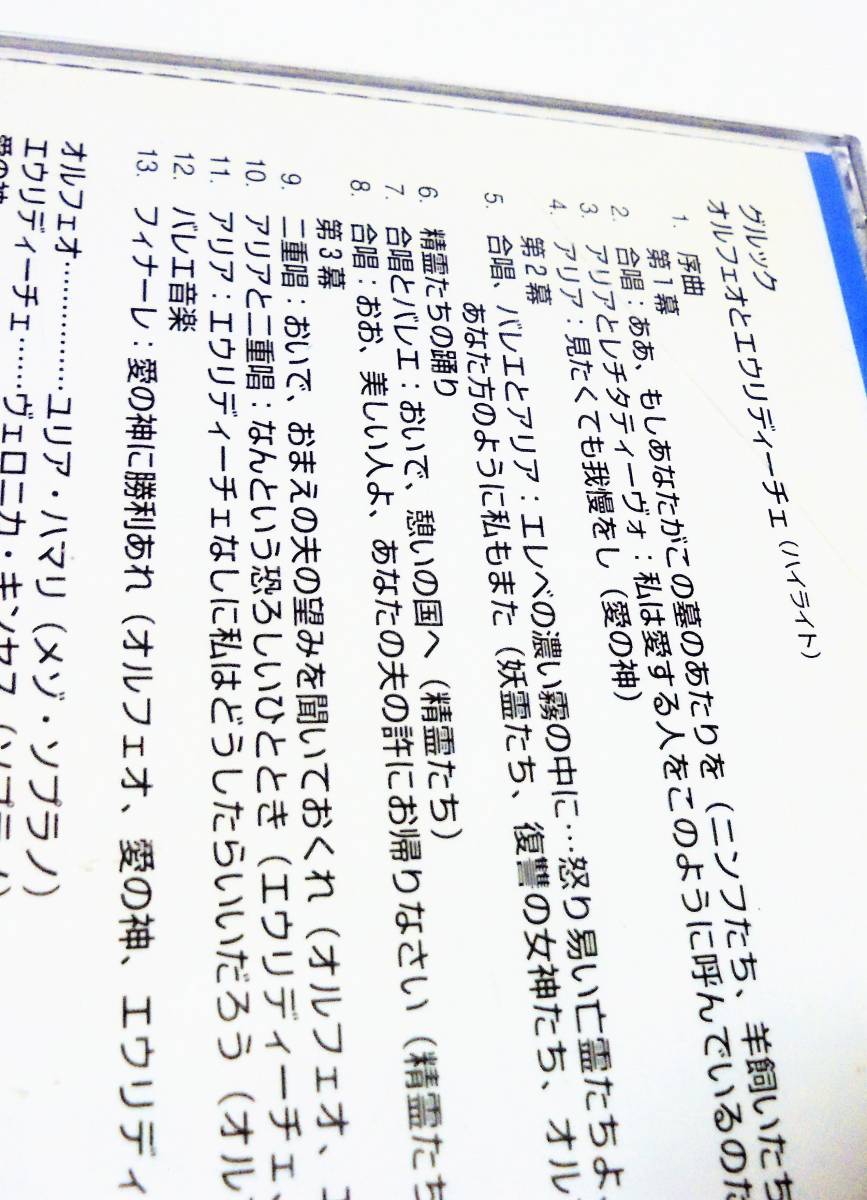 グルック
オルフェオとエウリディーチェ（ハイライト）
1. 序曲
第1幕
2. 合唱：ああ、もしあなたがこの墓のあたりを（ニンフたち、羊飼いたち
3. アリアとレチタティーヴォ：私は愛する人をこのように呼んでいるのだ
4. アリア：見たくても我慢をし（愛の神）
第2幕
5. 合唱、バレエとアリア：エレベの濃い霧の中に…怒り易い亡霊たちよ、
あなた方のように私もまた（妖霊たち、復讐の女神たち、オル
6. 精霊たちの踊り
7. 合唱とバレエ：おいで、憩いの国へ（精霊たち）
8. 合唱：おお、美しい人よ、あなたの夫の許にお帰りなさい（精霊たち
第3幕
9. 二重唱：おいで、おまえの夫の望みを聞いておくれ（オルフェオ、エ
10. アリアと二重唱：なんという恐ろしいひととき（エウリディーチェ、
11. アリア：エウリディーチェなしに私はどうしたらいいだろう（オル
12. バレエ音楽
13. フィナーレ：愛の神に勝利あれ（オルフェオ、愛の神、エウリディ
オルフェオ……………ユリア・ハマリ（メゾ・ソプラノ）
エウリディーチェ……ヴェロニカ・キンセス（ソプラノ）
愛の神